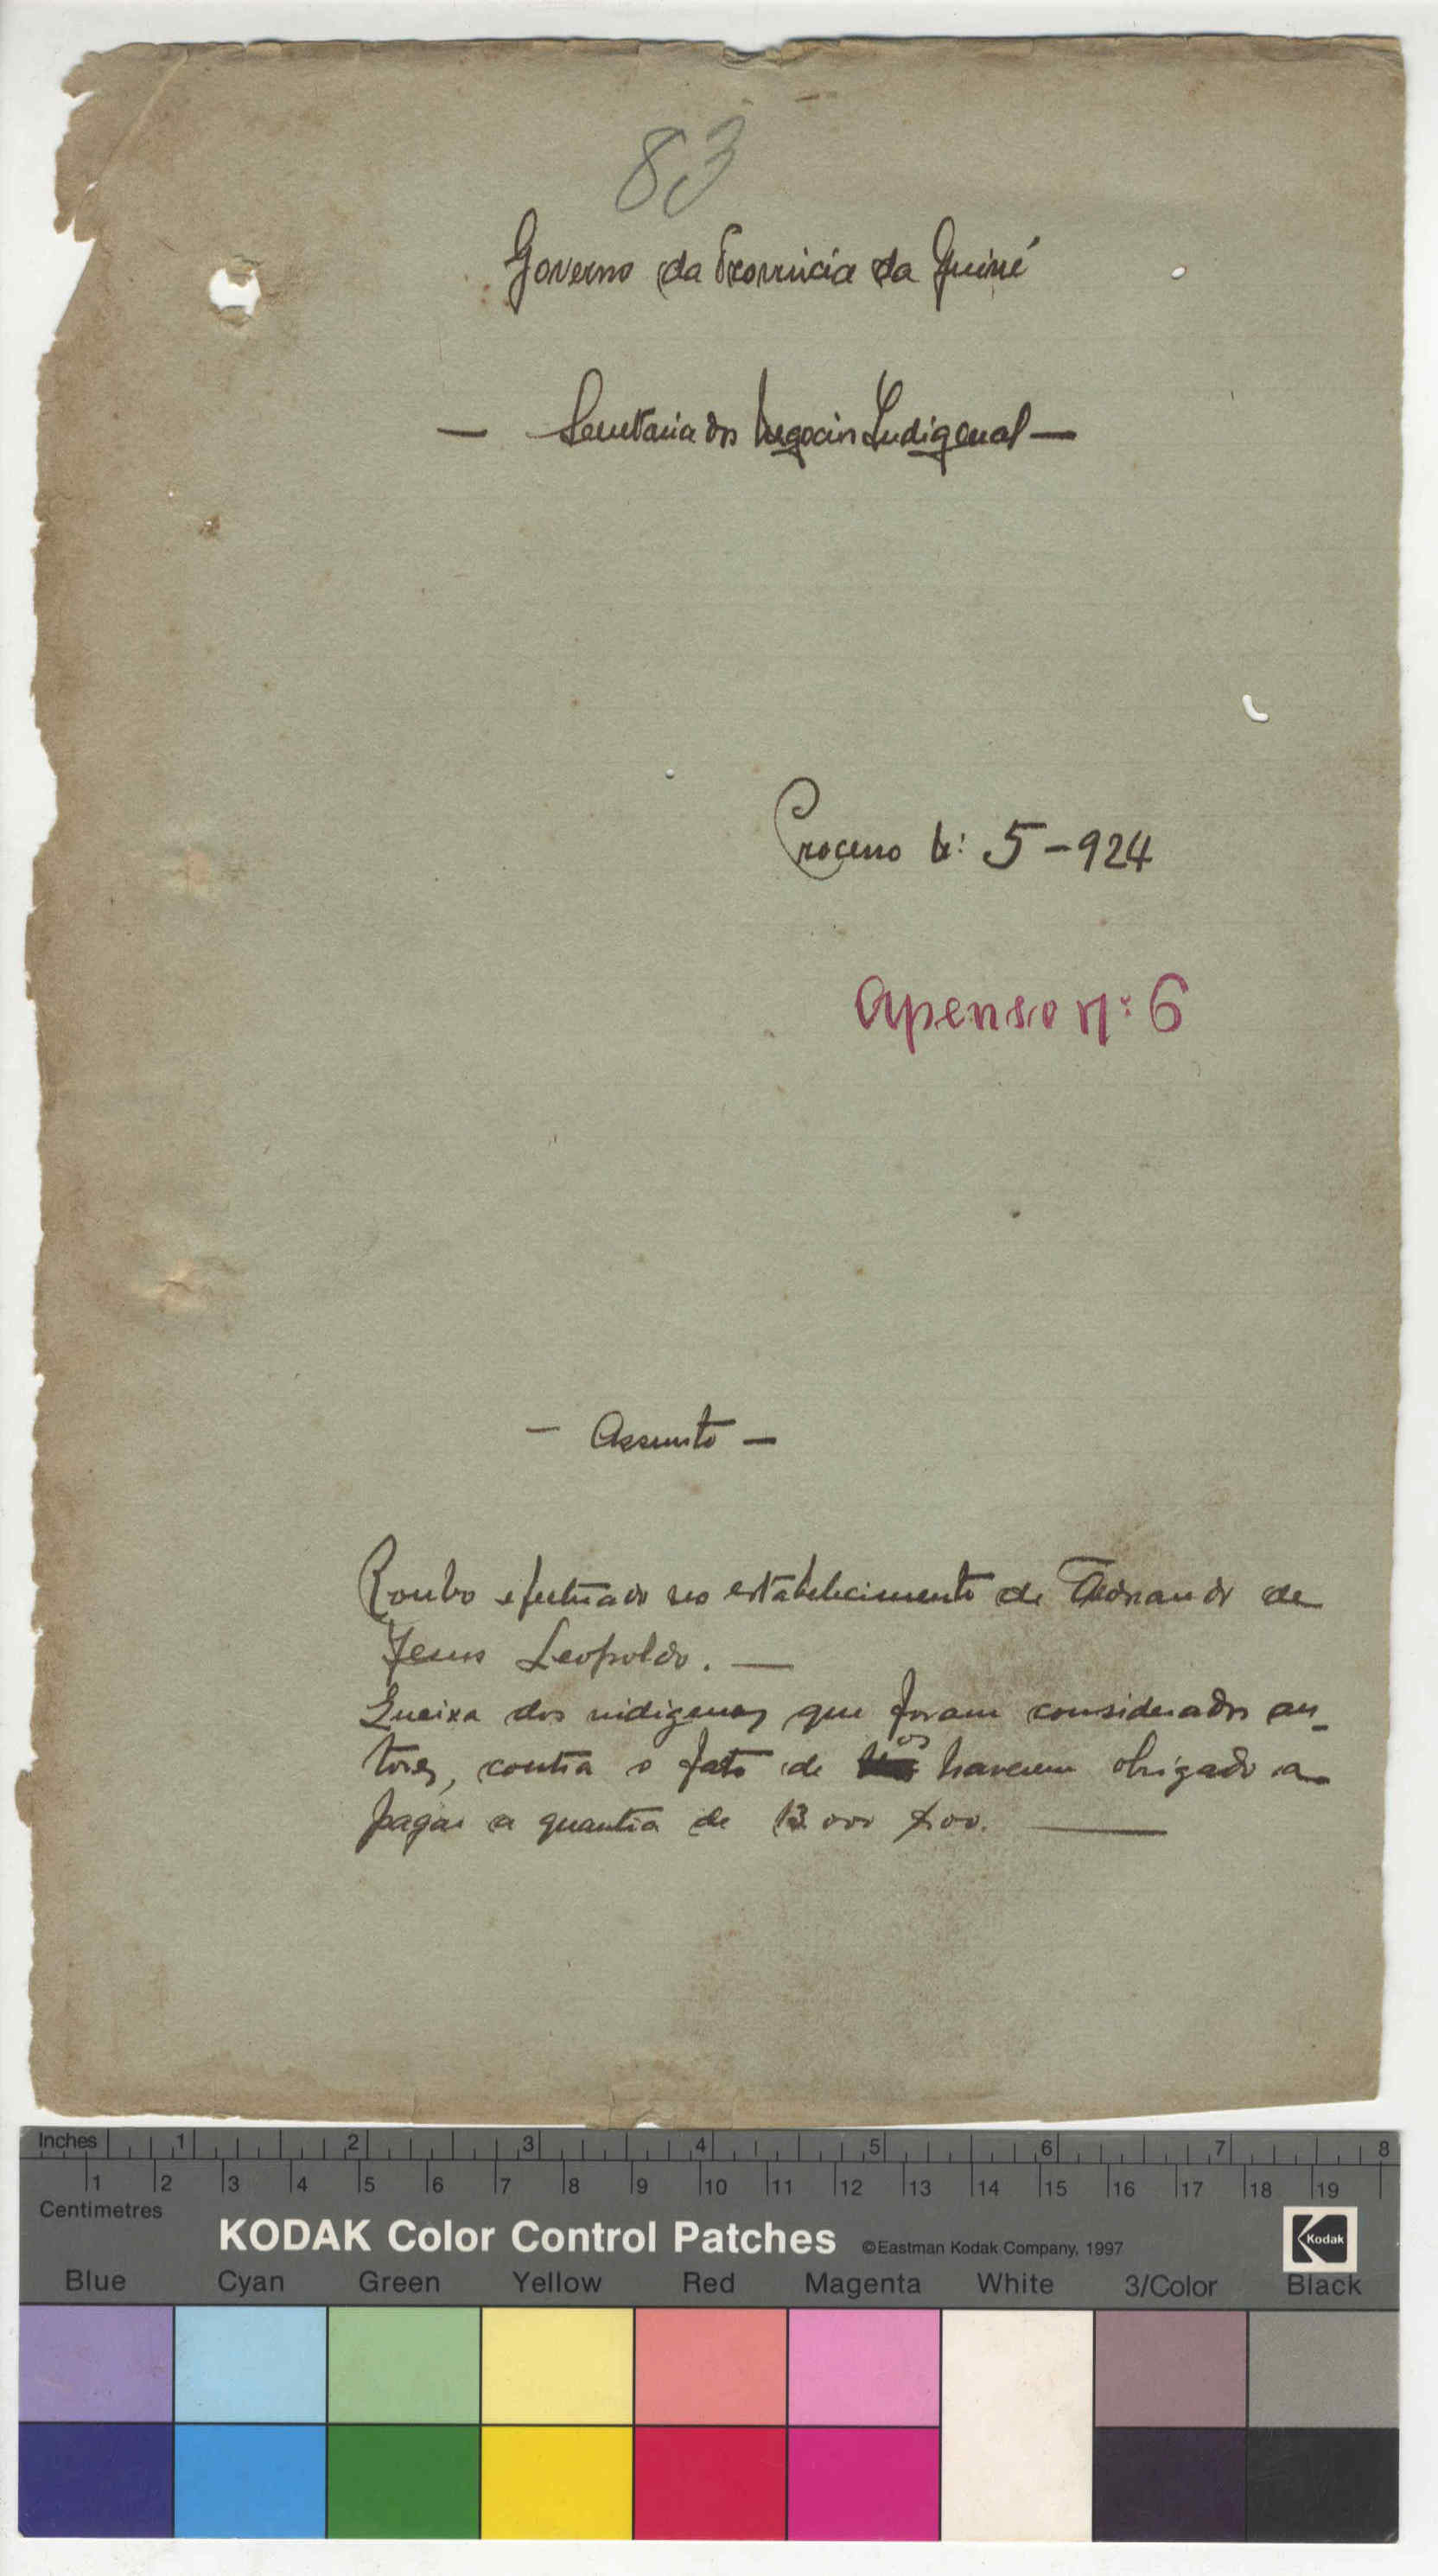 83
Governo da Provincia da Guiné
— Secretaria dos Negocios Indigenas —
Processo Nº: 5-924
Apenso nº: 6
— Assunto —
Roubo efectuado no estabelecimento de de
Jesus Leopoldo. —
Queixa dos indigenas que foram considerados au-
tores, contra o fato de os haverem obrigado a
pagar a quantia de 13.000 $00. —
Inches 1 2 3 4 5 6 7 8
1 2 3 4 5 6 7 8 9 10 11 12 13 14 15 16 17 18 19
Centimetres
KODAK Color Control Patches ©Eastman Kodak Company, 1997
Kodak
Blue Cyan Green Yellow Red Magenta White 3/Color Black